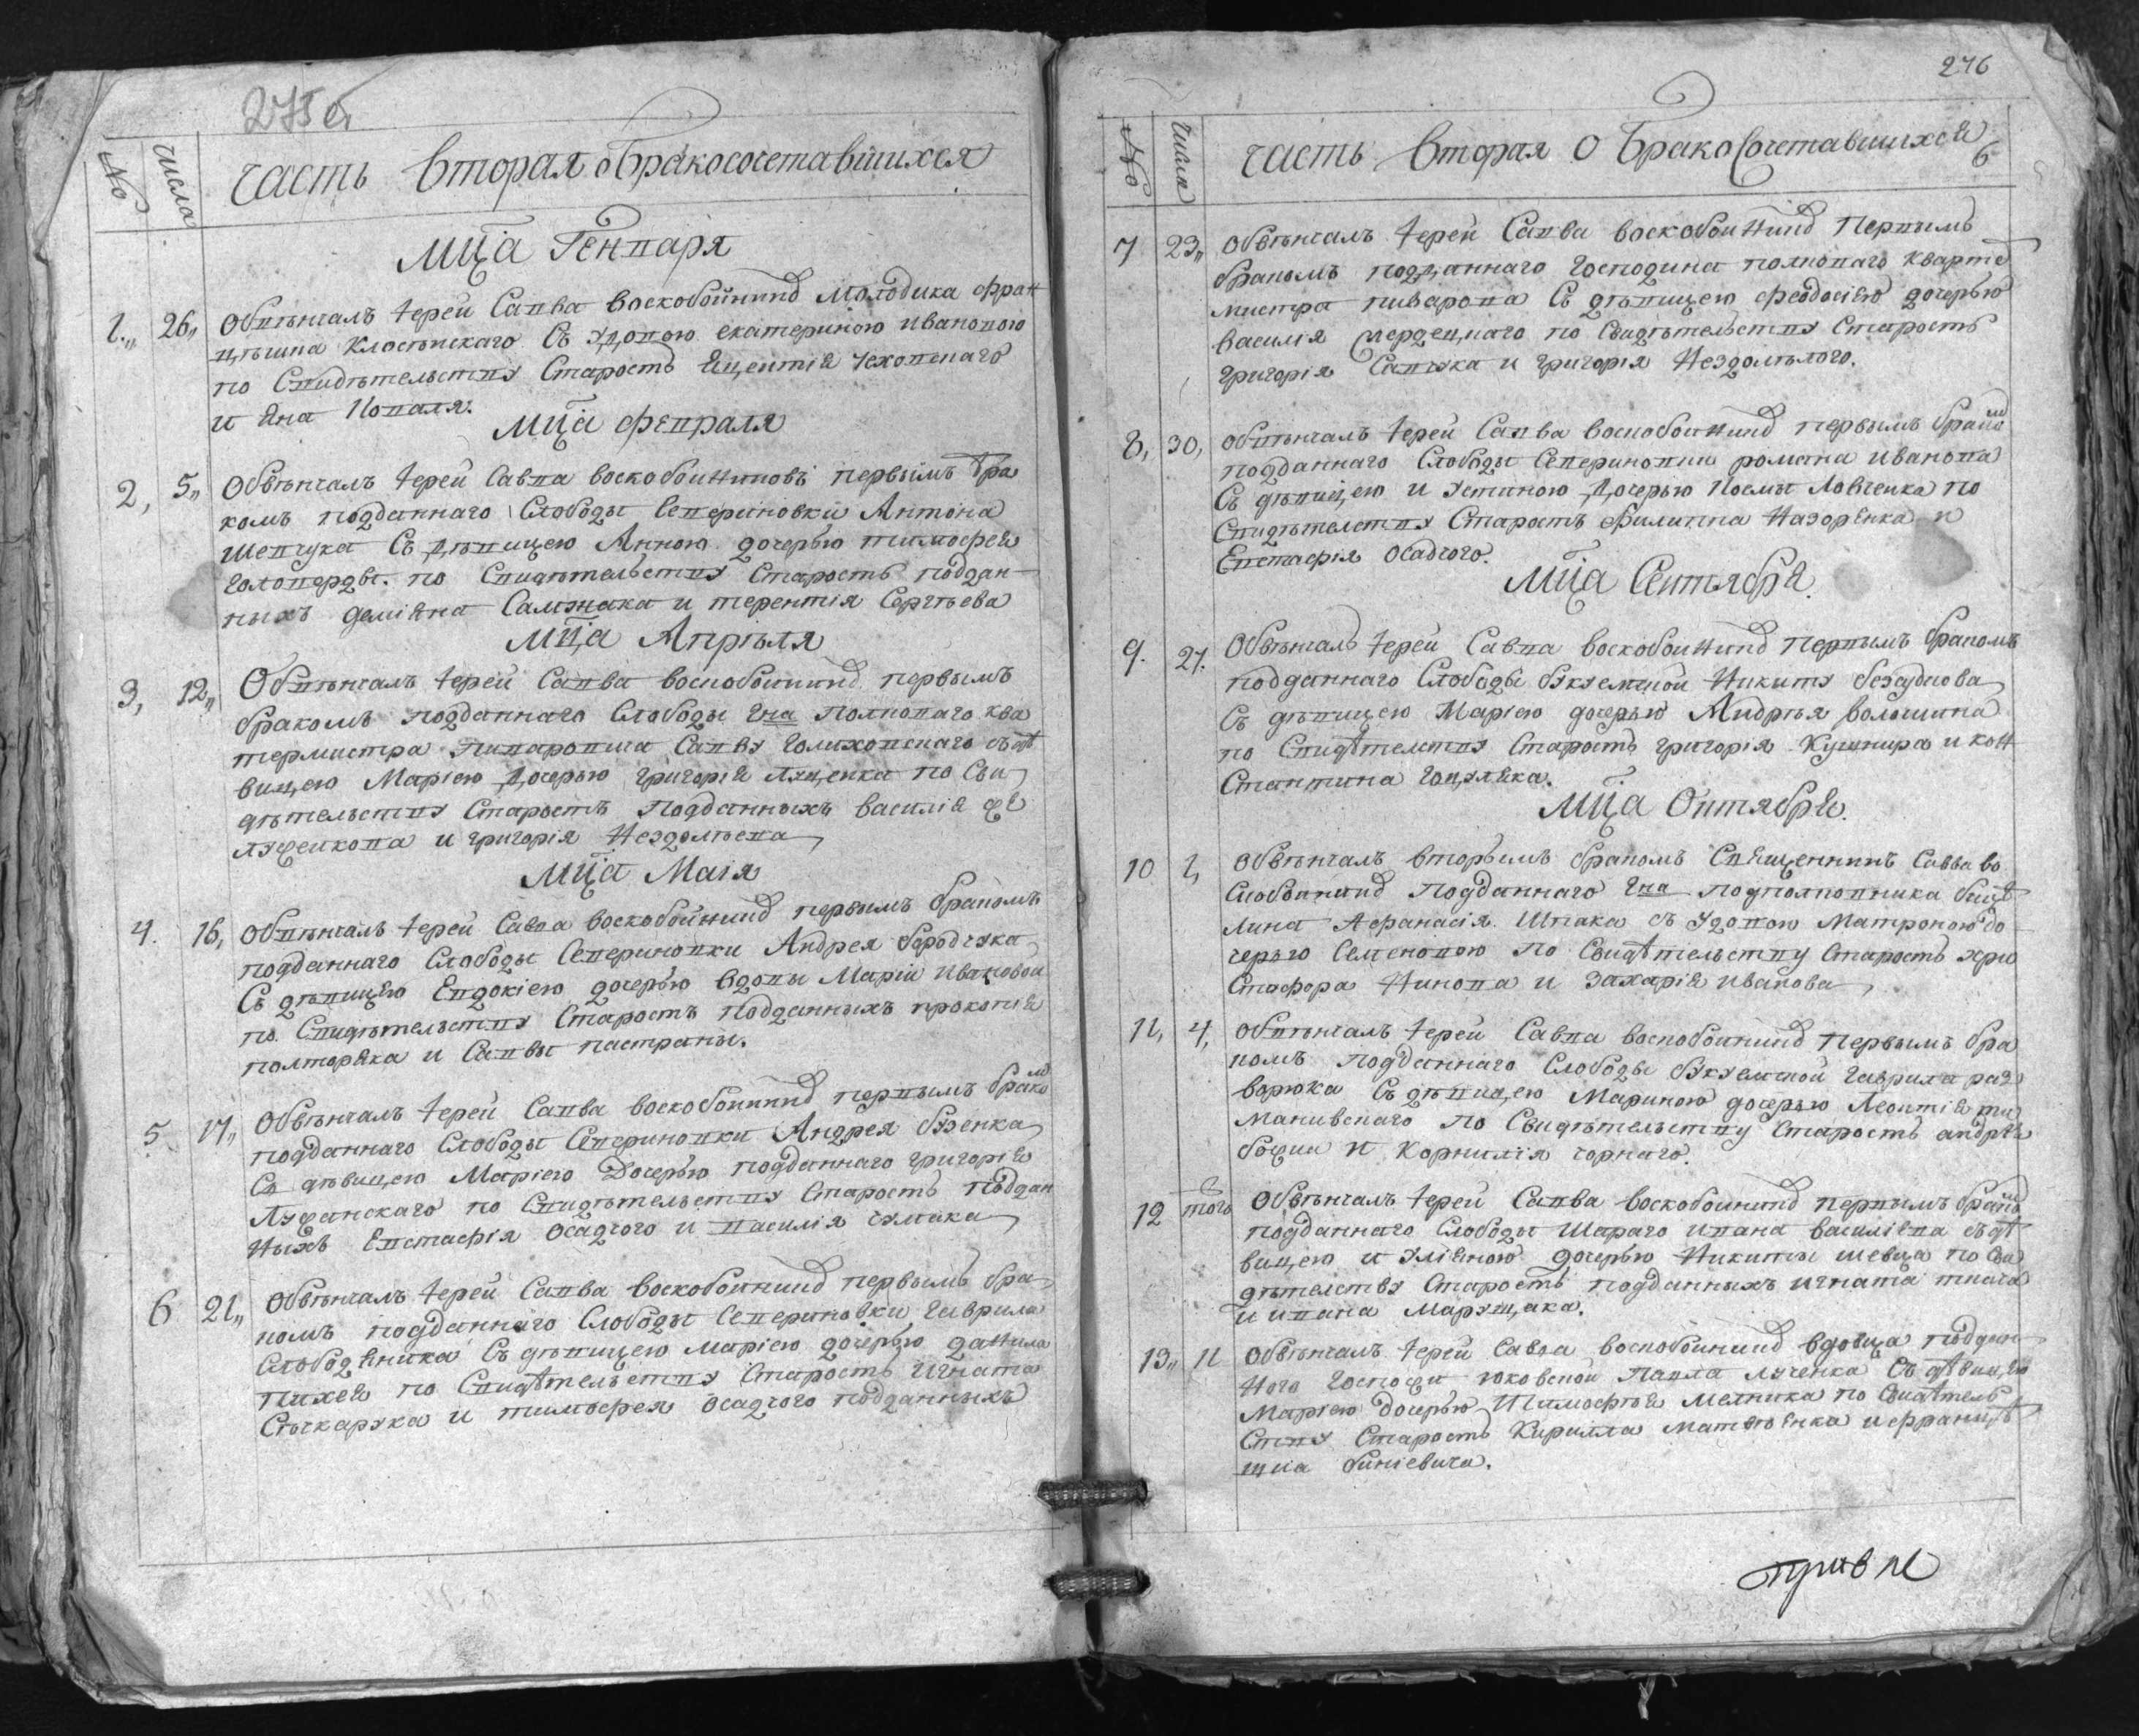 275 об
No
Числа
Часть Вторая о бракосочетавшихся
Мца Генваря
1., 26,, Обвѣнчалъ Іерей Савва воскобойникъ Молодика Фран
цѣшка Клосѣнскаго Съ удовою екатериною ивановою
по Свидѣтельству Старостъ Яцентія Чехонскаго
и Яна Коваля.
Мца Февраля
2, 5,, Обвѣнчалъ Іерей Савва воскобойниковъ первымъ бра
комъ подданнаго Слободы Севериновки Антона
Шевчука Съ дѣвицею Анною дочерью тимофея
Голопорды. по Свидѣтельству Старостъ поддан
ныхъ деміяна Самжака и терентія Сергѣева
Мца Апрѣля
3, 12,, Обвѣнчалъ Іерей Савва воскобойникъ первымъ
бракомъ подданнаго Слободы Гна Полковаго ква
термистра Пиваровича Савву Голиховскаго съ дѣ
вицею Маріею дочерью григорія Луценка по Сви
дѣтельству Старостъ Подданныхъ василія Фе
лущенкова и григорія Нездолѣева
Мца Маія
4. 16, Обвѣнчалъ Іерей Савва воскобойникъ первымъ бракомъ
подданнаго Слободы Севериновки Андрея бородчука
Съ дѣвицею Евдокіею дочерью вдовы Маріи ивановой
по Свидѣтельству Старостъ Подданныхъ прокопія
полторяка и Саввы пастраны.
5. 17,, Обвѣнчалъ Іерей Савва воскобойникъ первымъ бракомъ
подданнаго Слободы Севериновки Андрея бузенка
Съ дѣвицею Маріею Дочерью подданнаго григорія
Лущанскаго по Свидѣтельству Старостъ поддан
ныхъ Евстафія осадчого и василія чумака
6 21,, Обвѣнчалъ Іерей Савва воскобойникъ первымъ бра
комъ подданнаго Слободы Севериновки гаврила
Слободяника Съ дѣвицею маріею дочерью данила
пихея по Свидѣтельству Старостъ игната
Стыкарука и тимофея осадчого подданныхъ
276
No
Числа
Часть Вторая О Бракосочетавшихся
6
7 23,, Обвѣнчалъ Іерей Савва воскобойникъ первымъ
бракомъ подданнаго Господина полковаго кварте
мистра пиварова Съ дѣвицею феодосіею дочерью
василія Середецнаго по Свидѣтельству Старостъ
григорія Савчука и григорія Нездолѣлого.
8, 30, Обвѣнчалъ Іерей Савва воскобойникъ первымъ бракомъ
подданнаго Слободы Севериновки романа иванова
Съ дѣвицею и Устиною дочерью Космы Ловченка по
Свидѣтелству Старостъ филиппа Назорѣнка и
Евстафія осадчого.
Мца Сентября.
9. 27. Обвѣнчалъ Іерей Савва воскобойникъ первымъ бракомъ
подданнаго Слободы букземской Никиту безаубнова
Съ дѣвицею Маріею дочерью Андрѣя Волошина
по Свидѣтелству Старостъ григорія Кушнира и кон
Стантина гоцуляка.
Мца Октября.
10 1, Обвѣнчалъ вторымъ бракомъ Священникъ Савва во
Скобойникъ Подданнаго Гна подполковника бице
лина Афанасія Шпака съ Удовою Матроною до
черью Семеновою по Свидѣтельству Старостъ хри
Стофора Никова и Захарія иванова
11, 4, Обвѣнчалъ Іерей Савва воскобойникъ первымъ бра
комъ подданнаго Слободы букземской гаврила рае
ворюка Съ дѣвицею Мариною дочерью Леонтія ти
маковскаго по Свидѣтельству Старостъ андрѣя
бощна и корнилія чорнаго.
12 того Обвѣнчалъ Іерей Савва воскобойникъ первымъ бракомъ
подданнаго Слободы Шараго ивана василіева съ дѣ
вицею и Уліяною дочерью Никиты шевца по Сви
дѣтелству Старостъ подданныхъ игната ткача
и ивана Марущака.
13,, 11 Обвѣнчалъ Іерей Савва воскобойникъ вдовца поддан
ного Госпожи юковской Павла лученка Съ дѣвицею
Маріею дочерью Тимофѣя Мелника по Свидѣтель
Ству Старостъ Кирилла матвѣенка и францѣ
шка биніевича.